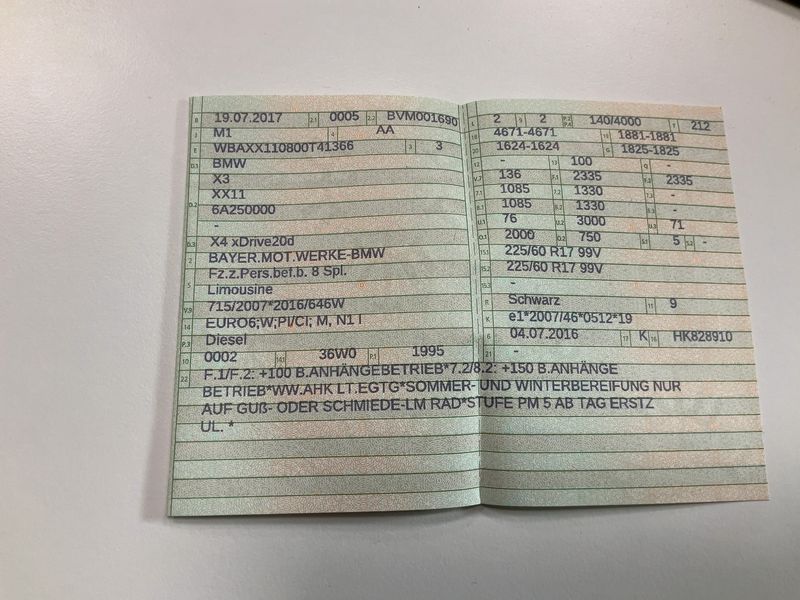 B 19.07.2017 2.1 0005 2.2 BVM001690
J M1 4 AA
E WBAXX110800T41366 3 3
D.1 BMW
X3
XX11
D.2 6A250000
-
D.3 X4 xDrive20d
2 BAYER.MOT.WERKE-BMW
Fz.z.Pers.bef.b. 8 Spl.
5 Limousine
V.9 715/2007*2016/646W
14 EURO6;W;PI/CI; M, N1 I
P.3 Diesel
10 0002 14.1 36W0 P.1 1995
L 2 9 2 P.2 P.4 140/4000 T 212
18 4671-4671 19 1881-1881
1624-1624 G 1825-1825
12 - 13 100 Q -
V.7 136 F.1 2335 F.2 2335
7.1 1085 7.2 1330 7.3 -
8.1 1085 8.2 1330 8.3 -
U.1 76 U.2 3000 U.3 71
O.1 2000 O.2 750 S.1 5 S.2 -
15.1 225/60 R17 99V
15.2 225/60 R17 99V
15.3 -
R Schwarz 11 9
K e1*2007/46*0512*19
6 04.07.2016 17 K 16 HK828910
21 -
22 F.1/F.2: +100 B.ANHÄNGEBETRIEB*7.2/8.2: +150 B.ANHÄNGE
BETRIEB*WW.AHK LT.EGTG*SOMMER- UND WINTERBEREIFUNG NUR
AUF GUß- ODER SCHMIEDE-LM RAD*STUFE PM 5 AB TAG ERSTZ
UL. *